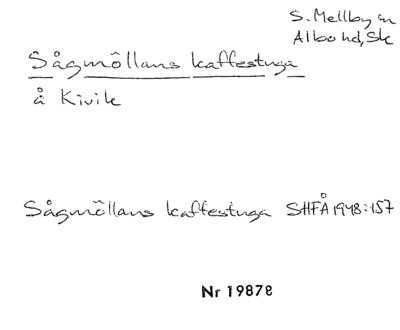 S. Mellby sn
Albo hd, Sk
Sågmôllans kaffestuga
å Kivik
Sågmôllans kaffestuga SHFÅ 1948:157
Nr 19878